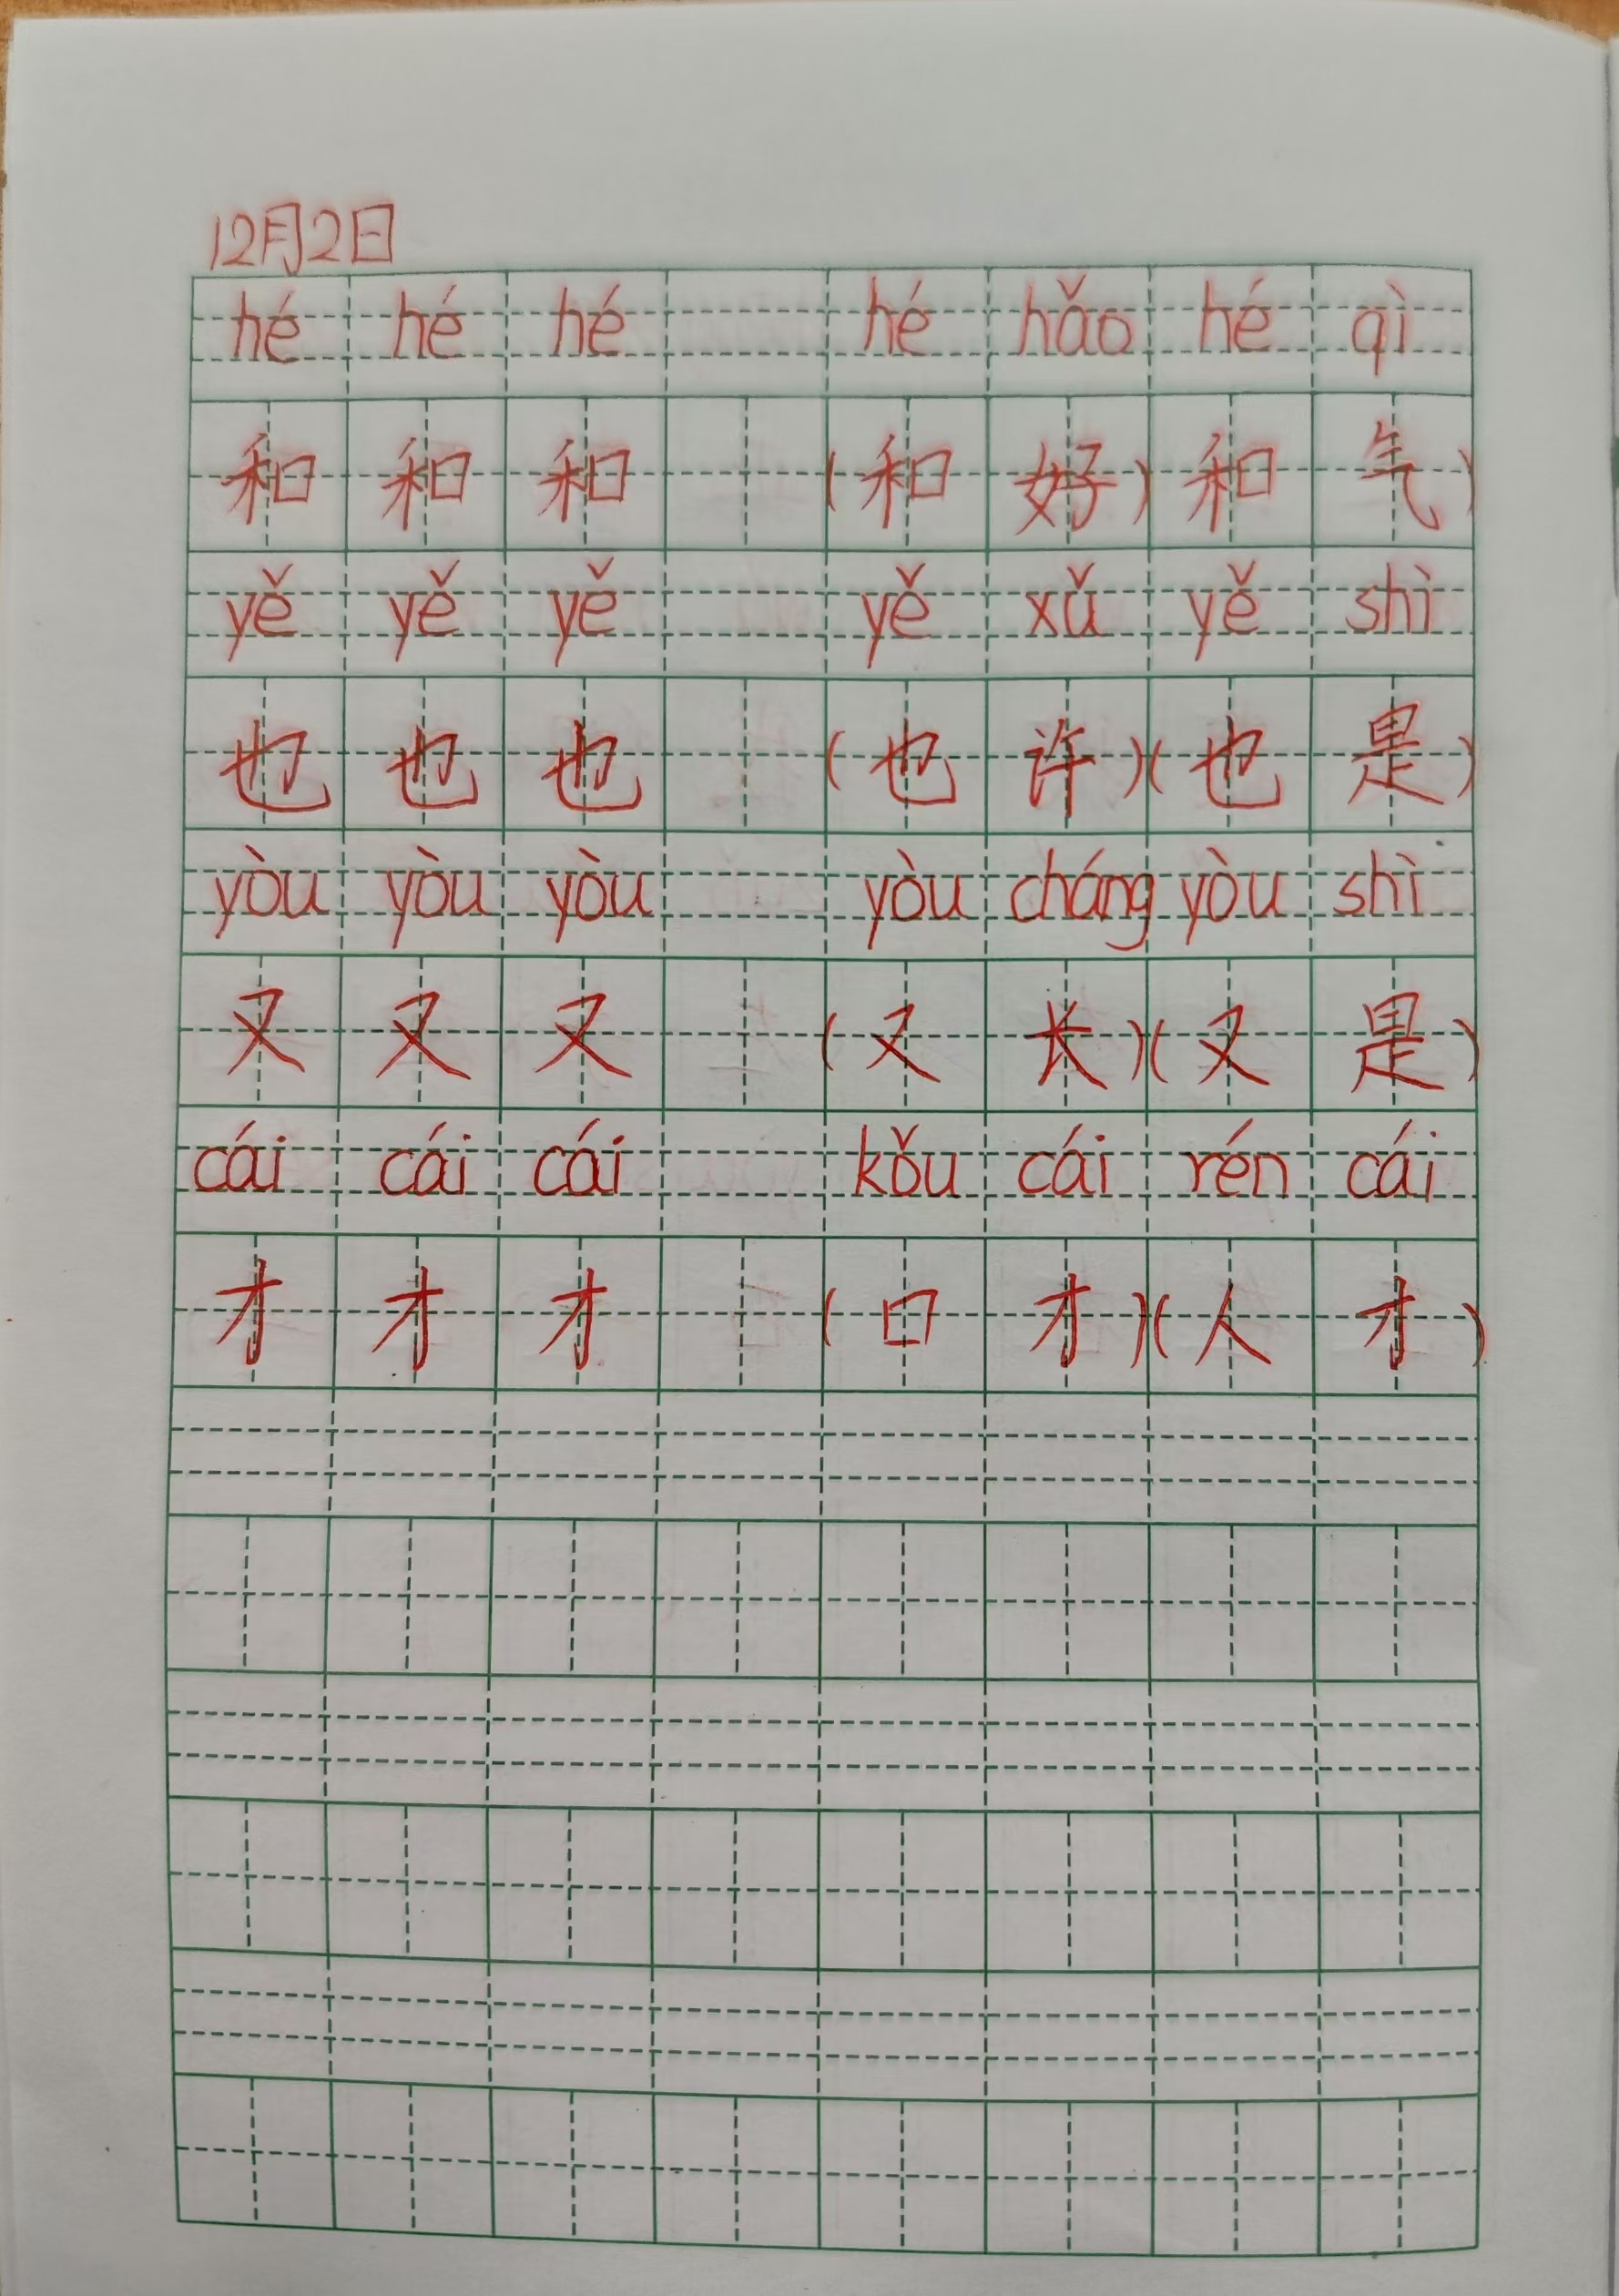 12月2日
hé hé hé hé hǎo hé qì
和 和 和 (和 好) 和 气)
yě yě yě yě xǔ yě shì
也 也 也 (也 许)(也 是)
yòu yòu yòu yòu cháng yòu shì
又 又 又 (又 长)(又 是)
cái cái cái kǒu cái rén cái
才 才 才 (口 才)(人 才)